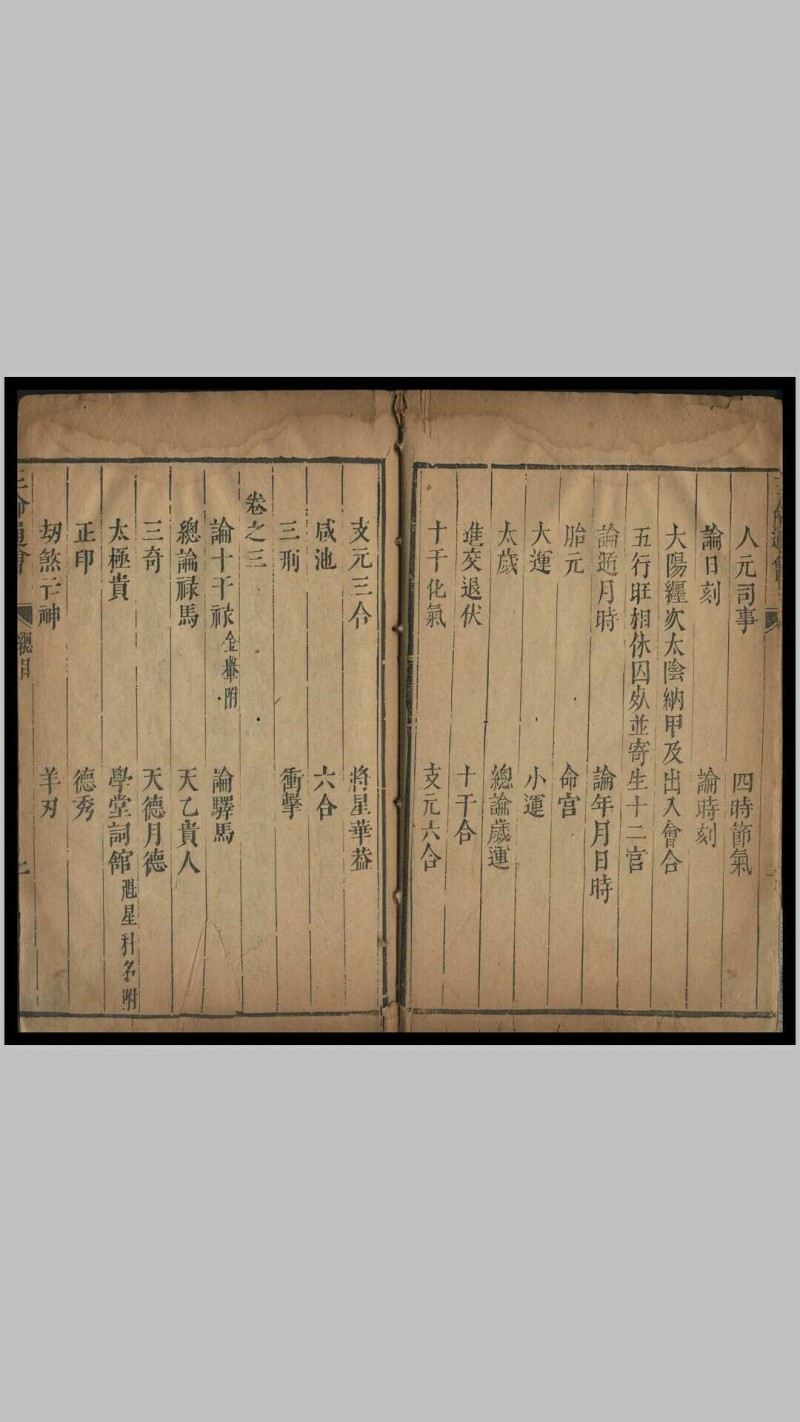 人元司事 四時節氣
論日刻 論時刻
大陽纏次太陰納甲及出入會合
五行旺相休囚死並寄生十二宮
論遁月時 論年月日時
胎元 命宮
大運 小運
太歲 總論歲運
進交退伏 十干合
十干化氣 支元六合
支元三合 將星華葢
咸池 六合
三刑 衝擊
卷之三
論十干祿金轝附 論驛馬
總論祿馬 天乙貴人
三奇 天德月德
太極貴 學堂詞館魁星科名附
正印 德秀
刼煞亡神 羊刃
三命通會 總目